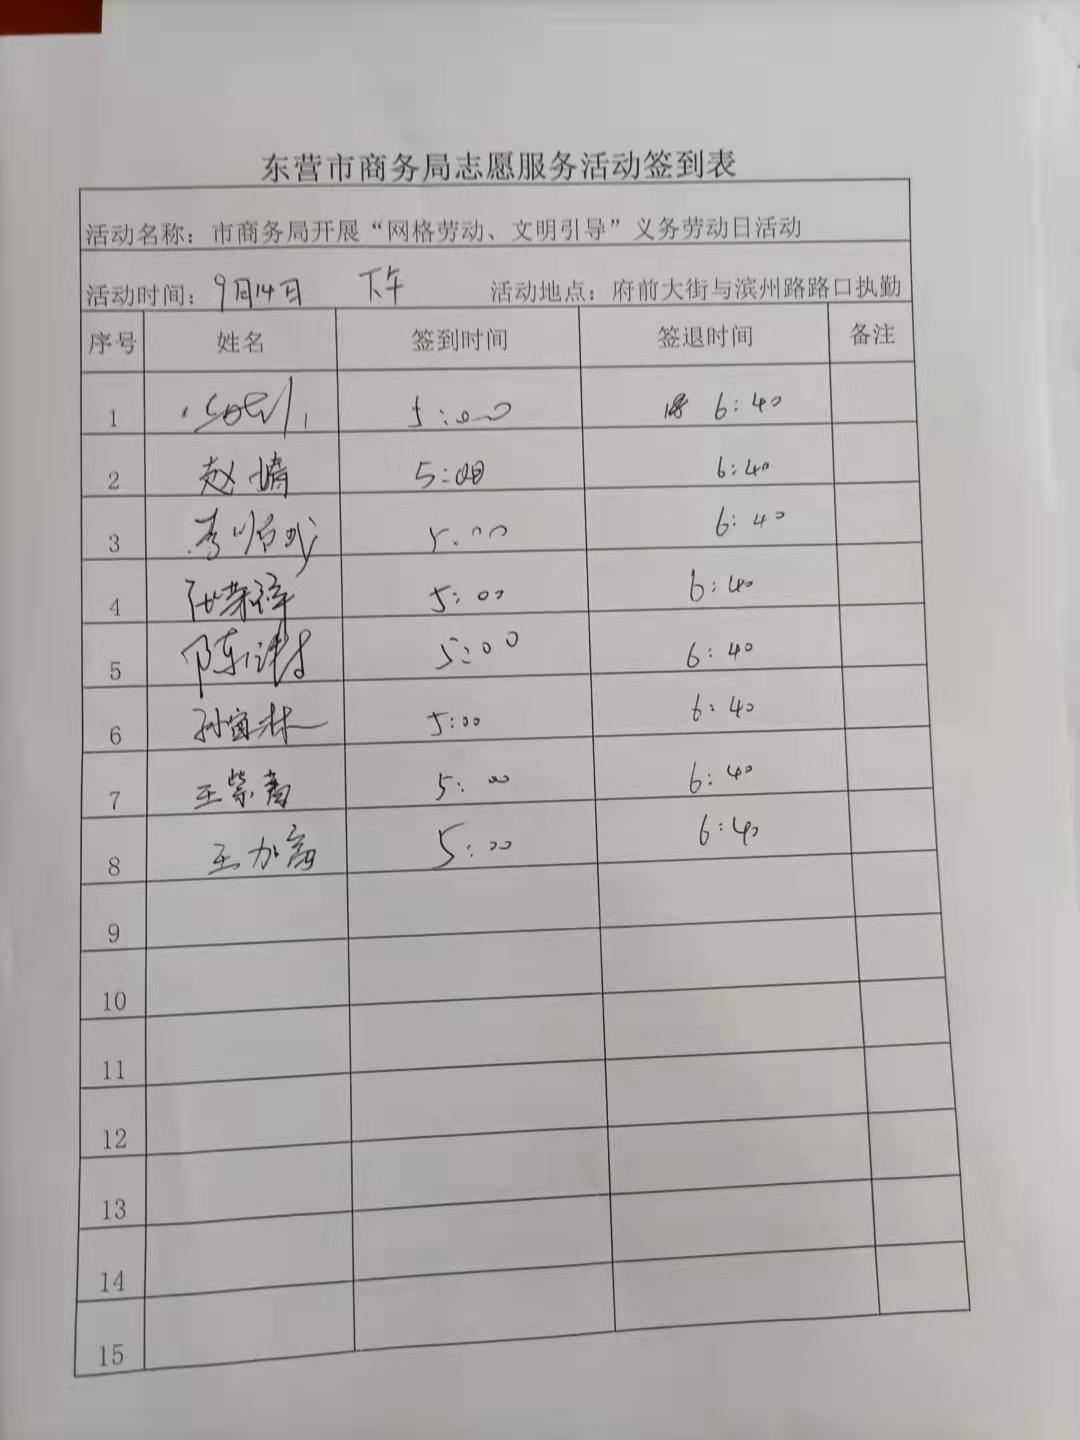 东营市商务局志愿服务活动签到表
活动名称：市商务局开展“网格劳动、文明引导”义务劳动日活动
活动时间：9月14日 下午 活动地点：府前大街与滨州路路口执勤
序号 姓名 签到时间 签退时间 备注
1 5:00 6:40
2 赵婧 5:00 6:40
3 李 5:00 6:40
4 5:00 6:40
5 陈 5:00 6:40
6 孙富林 5:00 6:40
7 王紫青 5:00 6:40
8 王加高 5:00 6:40
9
10
11
12
13
14
15